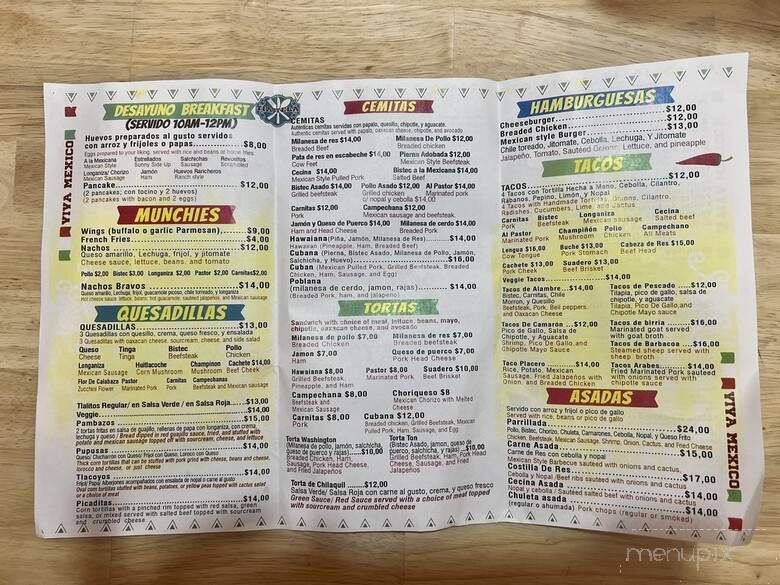 VIVA MEXICO
DESAYUNO BREAKFAST
(SERVIDO 10AM-12PM)
Huevos preparados al gusto servidos
con arroz y frijoles o papas...............$8,00
Eggs prepared to your liking, served with rice and beans or home fries.
A la Mexicana Estrellados Salchicha Revueltos
Mexican Style Sunny Side Up Sausage Scrambled
Longaniza/ Chorizo Jamón Huevos Rancheros
Mexican Sausage Ham Ranch style
Pancake...............$12,00
(2 pancakes; con tocino y 2 huevos)
(2 pancakes with bacon and 2 eggs)
MUNCHIES
Wings (buffalo o garlic Parmesan),......$9,00
French Fries...............$4,00
Nachos...............$12,00
Queso amarillo, Lechuga, frijol, y jitomate
Cheese sauce, lettuce, beans, and tomato
Pollo $2,00 Bistec $3,00 Longaniza $2,00 Pastor $2,00 Carnitas$2,00
Nachos Bravos...............$14,00
Queso amarillo, Lechuga, frijol, guacamole picoso, chile toreado, y longaniza
Hot cheese sauce lettuce, beans, hot guacamole, sautéed jalapenos, and Mexican sausage
QUESADILLAS
QUESADILLAS...............$13,00
3 Quesadillas con quesillo, crema, queso fresco, y ensalada
3 Quesadillas with oaxacan cheese, sourcream, cheese, and side salad
Queso Tinga Bistec Pollo
Cheese Tinga Beefsteak Chicken
Longaniza Huitlacoche Champinon Cachete $14,00
Mexican Sausage Corn Mushroom Mushroom Beef Cheek
Flor De Calabaza Pastor Carnitas Campechanas
Zucchini Flower Marinated Pork Pork Beefsteak and Mexican Sausage
Tlalitos Regular/ en Salsa Verde / en Salsa Roja...$13,00
Veggie...............$14,00
Pambazos...............$15,00
2 tortas fritas en salsa de guajillo, rellenas de papa con longaniza, con crema,
lechuga y queso / Bread dipped in red guajillo sauce, fried, and stuffed with
potato and mexican sausage topped with sourcream, cheese, and lettuce
Pupusas...............$14,00
Queso/ Chicharrón con Queso/ Frijol con Queso, Loroco con Queso
Thick corn tortillas that are stuffed with pork grind with cheese, beans and cheese,
lorocco and cheese, or just cheese
Tlacoyos...............$14,00
Frijol/ Papa/ Alberjones acompañados con ensalada de nopal o carne al gusto
Oval corn tortillas stuffed with beans, potatoes, or yellow peas topped with cactus salad
or a choice of meat
Picaditas...............$14,00
Corn tortillas with a pinched rim topped with red salsa, green
salsa, or mixed served with salted beef topped with sourcream
and crumbled cheese
CEMITAS
CEMITAS
Auténticas cemitas servidas con papalo, quesillo, chipotle, y aguacate.
Authentic cemitas served with papalo, oaxacan cheese, chipotle, and avocado
Milanesa de res $14,00 Milanesa De Pollo $12,00
Breaded Beef Breaded chicken
Pata de res en escabeche $14,00 Pierna Adobada $12,00
Cow Feet Mexican Style Beefsteak
Cecina $14,00 Bistec a la Mexicana $14,00
Mexican Style Pulled Pork Salted Beef
Bistec Asado $14,00 Pollo Asado $12,00 Al Pastor $14,00
Grilled beefsteak Grilled chicken Marinated pork
or nopal y cebolla $14,00
Carnitas $12,00 Campechana $12,00
Pork Mexican sausage and beefsteak
Jamón y Queso de Puerco $14,00 Milanesa de cerdo $14,00
Ham and Head Cheese Breaded Pork
Hawaiiana (Piña, Jamón, Milanesa de Res)...............$14,00
Hawaiian (Pineapple, Ham, Breaded Beef)
Cubana (Pierna, Bistec Asado, Milanesa de Pollo, Jamón,
Salchicha, y Huevo)...............$16,00
Cuban (Mexican Pulled Pork, Grilled Beefsteak, Breaded
Chicken, Ham, Sausage, and Egg)
Poblana
(milanesa de cerdo, jamon, rajas)...............$14,00
(Breaded Pork, ham, and jalapeño)
TORTAS
Sandwich with choice of meat, lettuce, beans, mayo,
chipotle, oaxacan cheese, and avocado
Milanesa de pollo $7,00 Milanesa de res $7,00
Breaded Chicken Breaded Beefsteak
Jamon $7,00 Queso de puerco $7,00
Ham Pork Head Cheese
Hawaiana $8,00 Pastor $8,00 Suadero $10,00
Grilled Beefsteak, Marinated Pork Beef Brisket
Pineapple, and Ham
Campechana $8,00 Choriqueso $8
Beefsteak and Mexican Chorizo with Melted
Mexican Sausage Cheese
Carnitas $8,00 Cubana $12,00
Pork Breaded chicken, Grilled Beefsteak, Pulled
Pork, Ham, Sausage, and Egg
Torta Washington
(Milanesa de pollo, jamón, salchicha,
queso de puerco y rajas)......$10,00
(Breaded Chicken, Ham,
Sausage, Pork Head Cheese,
and Fried Jalapeños
Torta Ton
(Bistec Asado, jamon, queso de
puerco, salchicha, y rajas) $10,00
(Grilled Beefsteak, Ham, Pork Head
Cheese, Sausage, and Fried
Jalapeños
Torta de Chilaquil .......$12,00
Salsa Verde/ Salsa Roja con carne al gusto, crema, y queso fresco
Green Sauce/ Red Sauce served with a choice of meat topped
with sourcream and crumbled cheese
HAMBURGUESAS
Cheeseburger...............$12,00
Breaded Chicken...............$12,00
Mexican style Burger...............$13,00
Chile toreado, Jitomate, Cebolla, Lechuga, Y Jitomate
Jalapeño, Tomato, Sautéed Onion, Lettuce, and pineapple
TACOS
TACOS...............$12,00
4 Tacos con Tortilla Hecha a Mano, Cebolla, Cilantro,
Rábanos, Pepino, Limón, y Nopal
4 Tacos with Handmade Tortillas, Onions, Cilantro,
Radishes, Cucumbers, Lime, and Cactus
Carnitas Bistec Longaniza Cecina
Pork Beefsteak Mexican sausage Salted beef
Al Pastor Champiñón Pollo Campechano
Marinated Pork Mushroom Chicken All Meats
Lengua $16,00 Buche $13,00 Cabeza de Res $15,00
Cow Tongue Pork Stomach Beef Head
Cachete $13,00 Suadero $13,00
Pork Cheek Beef Brisket
Veggie Tacos...............$14,00
Tacos de Alambre....$14,00
Bistec, Carnitas, Chile
Morron, y Quesillo
Beefsteak, Pork, Bell peppers,
and Oaxacan Cheese
Tacos De Camaron ....$12,00
Pico De Gallo, Salsa de
Chipotle, y Aguacate
Shrimp, Pico De Gallo,and
Chipotle Mayo Sauce
Taco Placero...............$14,00
Rice, Potato, Mexican
Sausage, Fried Jalapeños with
Onion, and Breaded Chicken
Tacos de Pescado ......$12,00
Tilapia, pico de gallo, salsa de
chipotle, y aguacate
Tilapia, Pico De Gallo,and
Chipotle Mayo sauce
Tacos de birria..........$16,00
Marinated goat served with
goat broth
Tacos de Barbacoa ....$16,00
Steamed sheep served with
sheep broth
Tacos Arabes..........$14,00
Fried Marinated Pork sauteed
with onions served with
chipotle sauce
ASADAS
Servido con arroz y frijol o pico de gallo
Served with rice, beans or pico de gallo
Parrillada...............$24,00
Pollo, Bistec, Chorizo, Chuleta, Camarones, Cebolla, Nopal, y Queso Frito
Chicken, Beefsteak, Mexican Sausage, Shrimp, Onion, Cactus, and Fried Cheese
Carne Asada...............$15,00
Carne de Res con cebolla y nopal
Mexican Style Barbecue sauteed with onions and cactus
Costilla De Res...............$17,00
Cebolla y Nopal /Beef ribs sauteed with onions and cactus
Cecina Asada...............$14,00
Nopal y cebolla / Sautéed salted beef with onions and cactus
Chuleta asada...............$14,00
(regular o ahumada) Pork chops (regular or smoked)
VIVA MEXICO
menupix